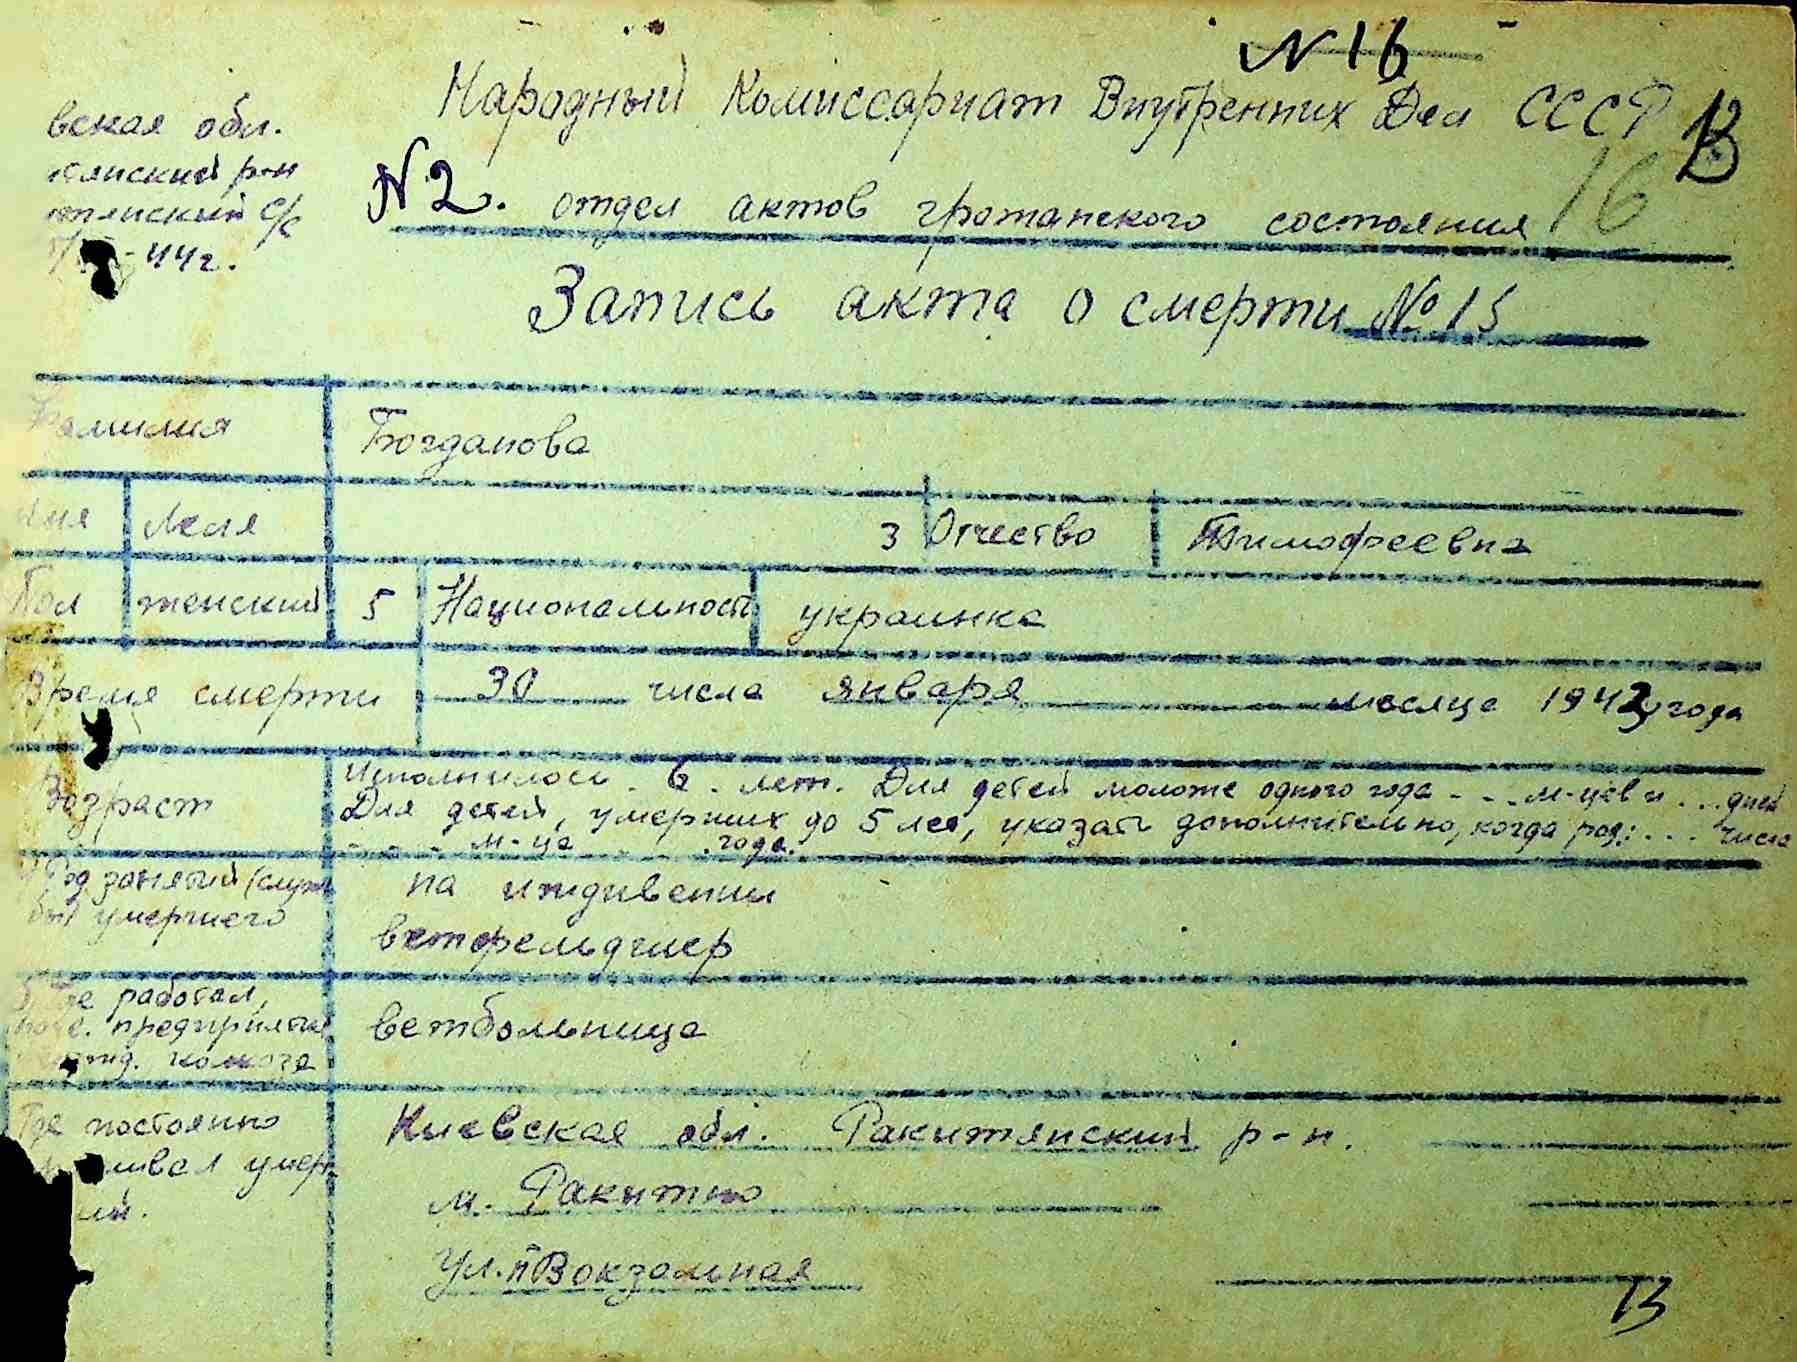 N 16
Народный Комиссариат Внутренних Дел СССР
вская обл.
тянский р-н
тянский с/с
44г.
N 2. отдел актов гротанского состояния 16
Запись акта о смерти № 15
Фамилия Богданова
Имя Леля 3 Отчество Тимофеевна
Пол женский 5 Национальность украинка
Время смерти 30 числа января месяца 1943 года
Возраст Исполнилось . 6 . лет. Для детей моложе одного года - . . м-цев и . . . дней
Для детей, умерших до 5 лет, указать дополнительно, когда род: . . . числа
. . . . м-ца . . . . года.
Род занятий (служ
бы) умершего
на иждивении
ветфельдшер
Где работал,
предприятие
колхоза
ветбольница
Где постоянно
ивал умер-
ий.
Киевская обл. Ракитянский р-н.
м. Ракитно
ул. Вокзальная
13